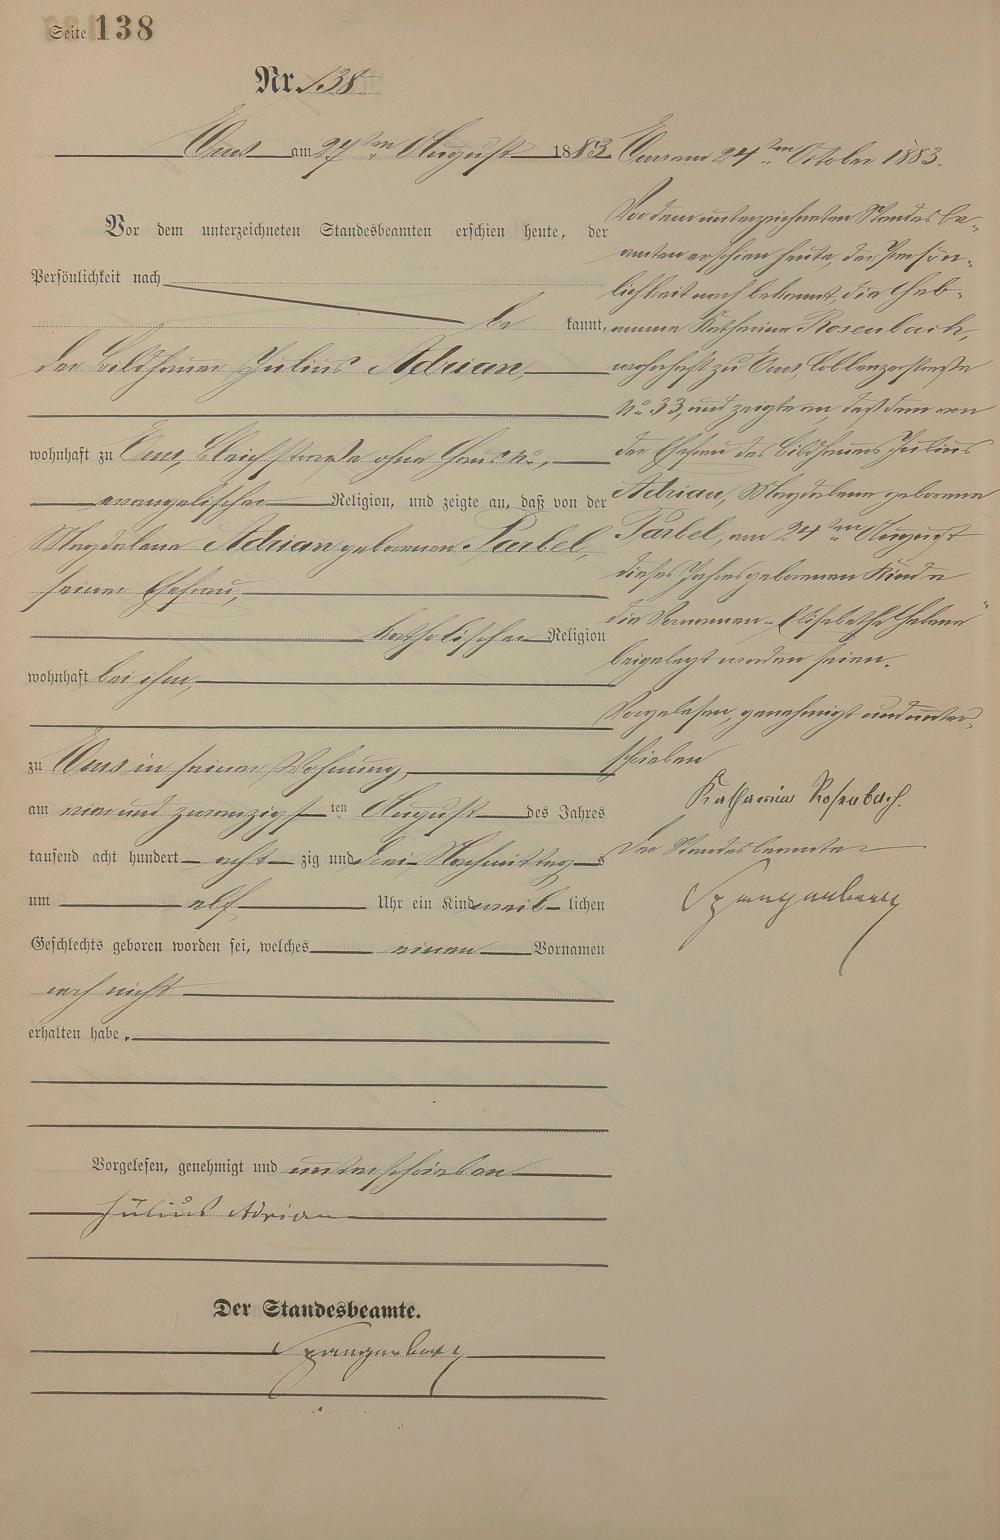 Seite 138
Nr. 138
Ems am 27ten August 1883
Vor dem unterzeichneten Standesbeamten erschien heute, der
Persönlichkeit nach
be kannt,
der Bildhauer Julius Adrian,
wohnhaft zu Ems, Bleichstraße ohne Haus No.,
evangelischer Religion, und zeigte an, daß von der
Magdalena Adrian geborenen Parbel,
seiner Ehefrau,
katholischer Religion
wohnhaft bei ihm,
zu Ems in seiner Wohnung,
am vier und zwanzigsten August des Jahres
tausend acht hundert acht zig und drei Nachmittags
um elf Uhr ein Kind weib lichen
Geschlechts geboren worden sei, welches einen Vornamen
noch nicht
erhalten habe.
Vorgelesen, genehmigt und unterschrieben
Julius Adrian
Der Standesbeamte.
Spangenberg
Ems am 24ten October 1883.
Vor dem unterzeichneten Standesbe-
amten erschien heute, der Persön-
lichkeit nach bekannt, die Heb-
amme Katharina Rosenbach,
wohnhaft zu Ems, Coblenzerstraße
No. 33, und zeigte an, daß dem von
der Ehefrau des Bildhauers Julius
Adrian, Magdalena geborene
Parbel, am 24ten August
dieses Jahres geborenen Kinde
die Vornamen „Elisabetha Helena“
beigelegt worden seien.
Vorgelesen, genehmigt und unter-
schrieben
Katharina Rosenbach.
Der Standesbeamte
Spangenberg